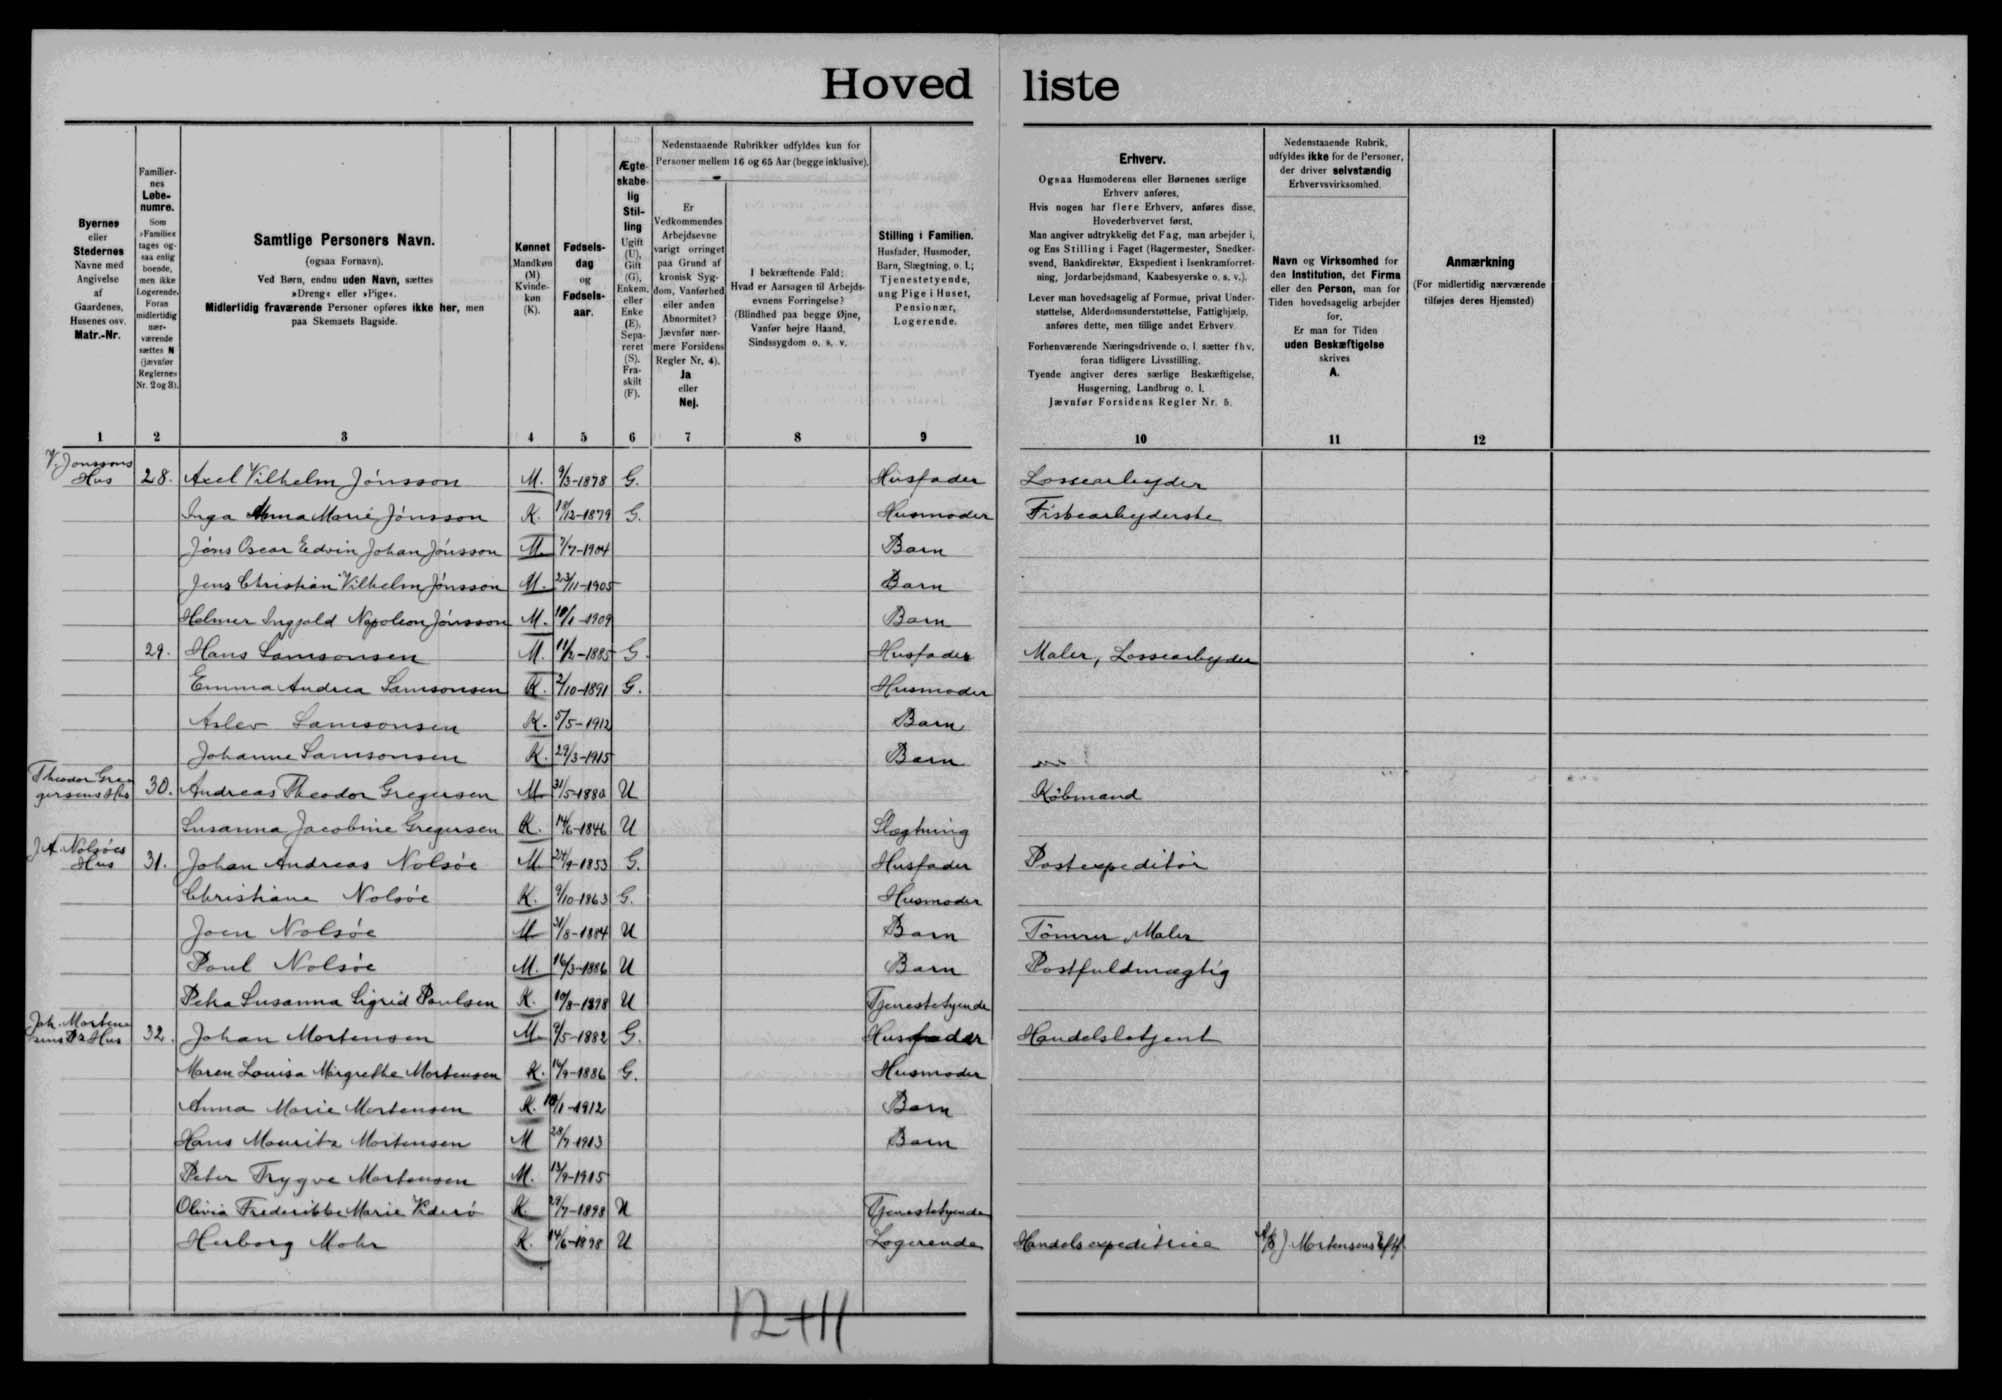 Hoved liste
Byernes
eller
Stedernes
Navne med
Angivelse
af
Gaardenes,
Husenes osv.
Matr.-Nr.
Familier-
nes
Løbe-
numre.
Som
»Familie«
tages og-
saa enlig
boende,
men ikke
Logerende.
Foran
midlertidig
nær-
værende
sættes N
(jævnfør
Reglernes
Nr. 2 og 3).
Samtlige Personers Navn.
(ogsaa Fornavn).
Ved Børn, endnu uden Navn, sættes
»Dreng« eller »Pige«.
Midlertidig fraværende Personer opføres ikke her, men
paa Skemaets Bagside.
Kønnet
Mandkøn
(M)
Kvinde-
køn
(K).
Fødsels-
dag
og
Fødsels-
aar.
Ægte-
skabe-
lig
Stil-
ling
Ugift
(U),
Gift
(G),
Enkem.
eller
Enke
(E),
Sepa-
reret
(S).
Fra-
skilt
(F).
Nedenstaaende Rubrikker udfyldes kun for
Personer mellem 16 og 65 Aar (begge inklusive).
Er
Vedkommendes
Arbejdsevne
varigt forringet
paa Grund af
kronisk Syg-
dom, Vanførhed
eller anden
Abnormitet?
Jævnfør nær-
mere Forsidens
Regler Nr. 4).
Ja
eller
Nej.
I bekræftende Fald:
Hvad er Aarsagen til Arbejds-
evnens Forringelse?
(Blindhed paa begge Øjne,
Vanfør højre Haand,
Sindssygdom o. s. v.
Stilling i Familien.
Husfader, Husmoder,
Barn, Slægtning, o. l.;
Tjenestetyende,
ung Pige i Huset,
Pensionær,
Logerende.
Erhverv.
Ogsaa Husmoderens eller Børnenes særlige
Erhverv anføres,
Hvis nogen har flere Erhverv, anføres disse,
Hovederhvervet først,
Man angiver udtrykkelig det Fag, man arbejder i,
og Ens Stilling i Faget (Bagermester, Snedker-
svend, Bankdirektør, Ekspedient i Isenkramforret-
ning, Jordarbejdsmand, Kaabesyerske o. s. v.).
Lever man hovedsagelig af Formue, privat Under-
støttelse, Alderdomsunderstøttelse, Fattighjælp,
anføres dette, men tillige andet Erhverv.
Forhenværende Næringsdrivende o. l. sætter fhv.
foran tidligere Livsstilling.
Tyende angiver deres særlige Beskæftigelse,
Husgerning, Landbrug o. l.
Jævnfør Forsidens Regler Nr. 5.
Nedenstaaende Rubrik,
udfyldes ikke for de Personer,
der driver selvstændig
Erhvervsvirksomhed.
Navn og Virksomhed for
den Institution, det Firma
eller den Person, man for
Tiden hovedsagelig arbejder
for.
Er man for Tiden
uden Beskæftigelse
skrives
A.
Anmærkning
(For midlertidig nærværende
tilføjes deres Hjemsted)
1 2 3 4 5 6 7 8 9 10 11 12
V. Jonssons
Hus 28. Axel Vilhelm Jónsson M. 9/3-1878 G. Husfader Lossearbejder
Inga Anna Marie Jónsson K. /12-1879 G. Husmoder Fiskearbejderske
Jóns Oscar Edvin Johan Jónsson M /7-1904 Barn
Jens Christian Vilhelm Jónsson M. 23/11-1905 Barn
Helmer Ingjald Napoleon Jónsson M. /1-1909 Barn
29. Hans Samsonsen M. /2-1885 G. Husfader Maler, Lossearbejder
Emma Andrea Samsonsen K. /10-1891 G. Husmoder
Aslev Samsonsen K. 5/5-1912 Barn
Johanne Samsonsen K. 29/3-1915 Barn
Theodor Gre
gersens Hus 30. Andreas Theodor Gregersen M 31/5-1880 U Købmand
Susanna Jacobine Gregersen K. 14/6-1846 U Slægtning
J. A. Nolsöes
Hus 31. Johan Andreas Nolsöe M 24/9-1853 G. Husfader Postexpeditör
Christiane Nolsöe K. 9/10-1863 G. Husmoder
Joen Nolsöe M /8-1884 U Barn Tömrer, Maler
Poul Nolsöe M. 16/3-1886 U Barn Postfuldmægtig
Petra Susanna Sigrid Poulsen K. 10/8-1898 U Tjenestetyende
Joh. Mortens
sens Hus 32. Johan Mortensen M /5-1882 G. Husfader Handelsbetjent
Maren Louisa Margrethe Mortensen K. 14/9-1886 G. Husmoder
Anna Marie Mortensen K. /1-1912 Barn
Hans Mouritz Mortensen M 28/7-1913 Barn
Peter Trygve Mortensen M. 13/9-1915
Olivia Frederikke Marie Viderö K. 29/7-1898 U Tjenestetyende
Herborg Mohr K. 14/6-1898 U Logerende Handelsexpeditrice A/S J. Mortensens Eftf.
12+11